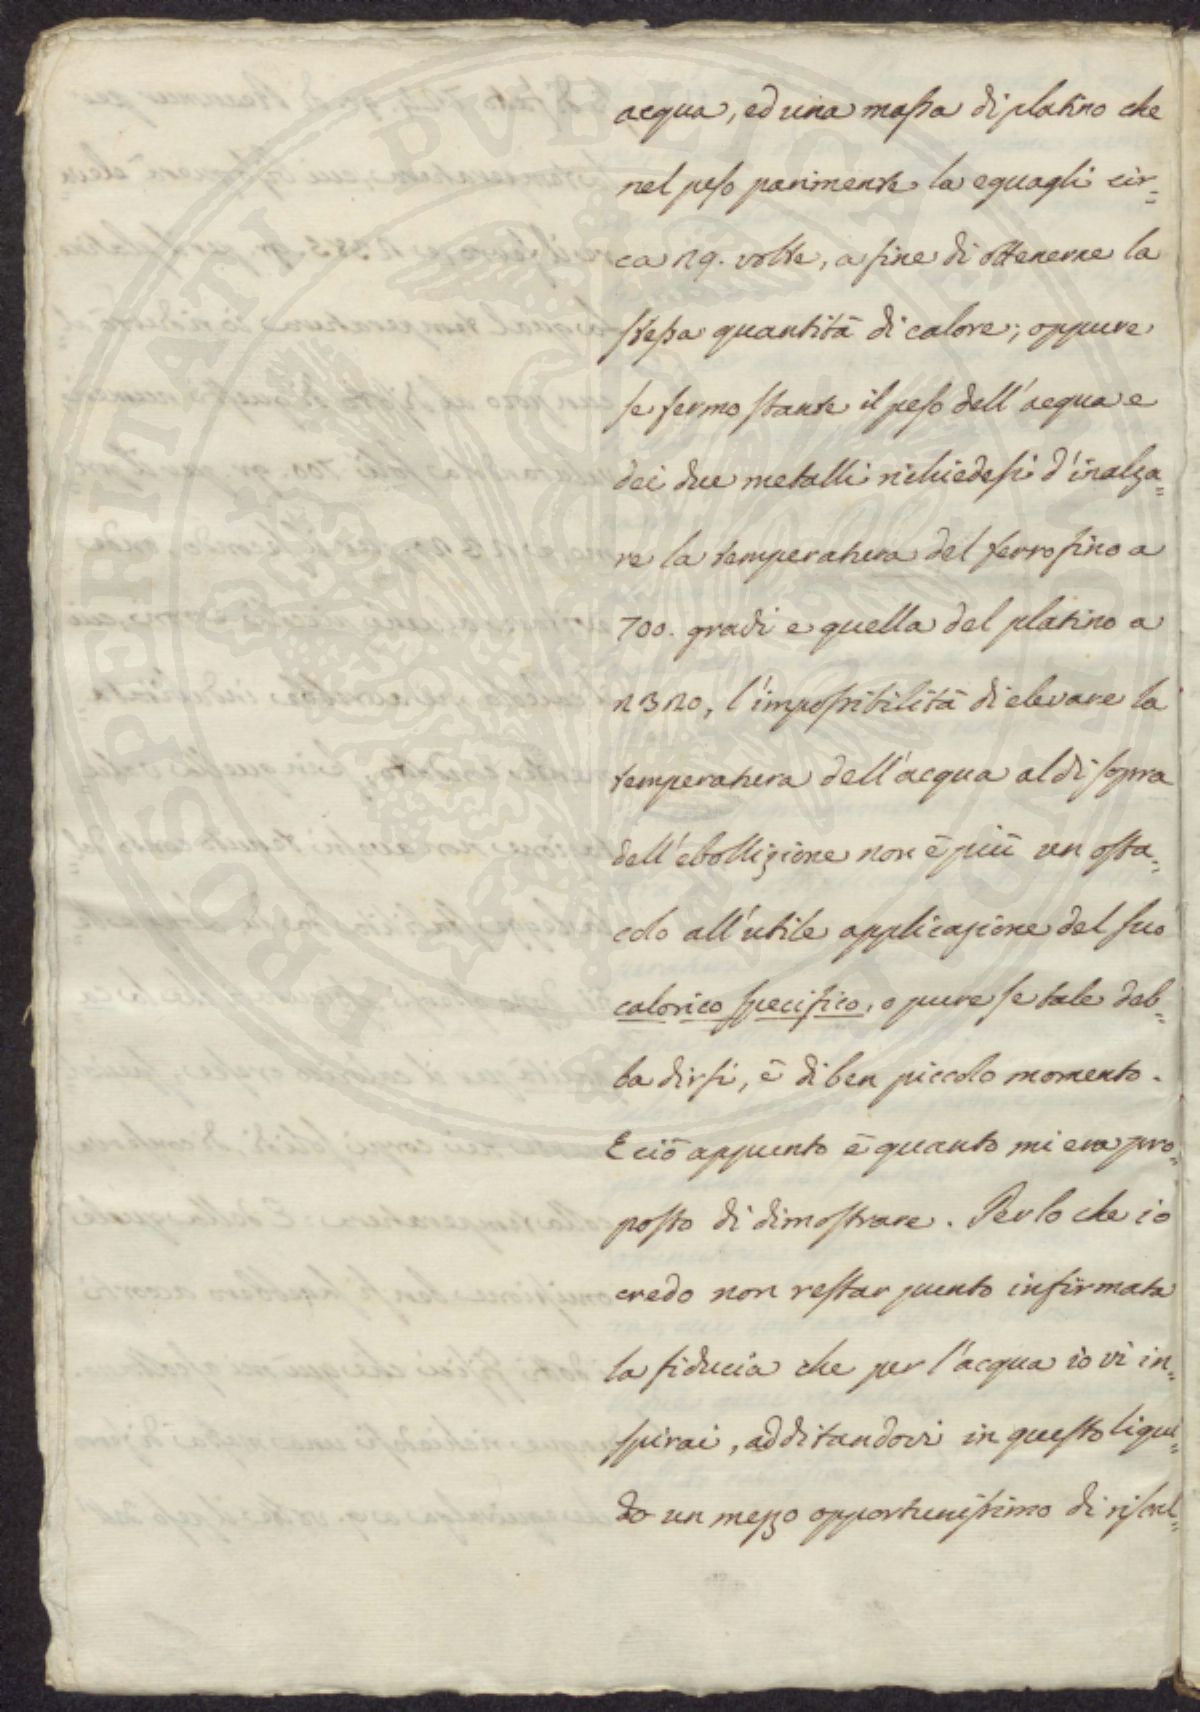 acqua, ed una massa di platino che
nel peso parimente la eguagli cir=
ca 19. volte, a fine di ottenerne la
stessa quantità di calore; oppure
se fermo stante il peso dell'acqua e
dei due metalli richiedesi d'inalza=
re la temperatura del ferro fino a
700. gradi e quella del platino a
1310, l'impossibilità di elevare la
temperatura dell'acqua al di sopra
dell'ebollizione non è più un osta=
colo all'utile applicazione del suo
calorico specifico, o pure se tale deb=
ba dirsi, è di ben piccolo momento.
E ciò appunto è quanto mi era pro=
posto di dimostrare. Per lo che io
credo non restar punto infirmata
la fiducia che per l'acqua io vi in=
spirai, additandovi in questo liqui=
do un mezzo opportunissimo di riscal=